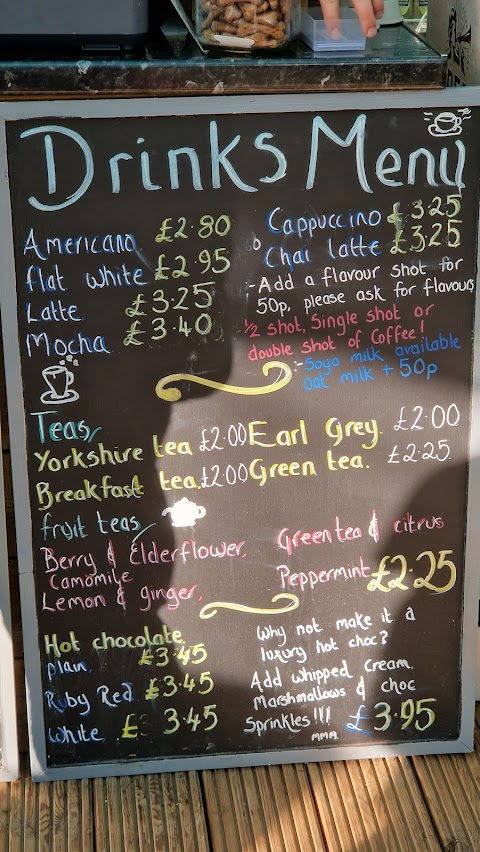 Drinks Menu
Americano £2.80
flat white £2.95
Latte £3.25
Mocha £3.40
Cappuccino £3.25
Chai latte £3.25
-Add a flavour shot for
50p, please ask for flavours
1/2 shot, Single shot or
double shot of Coffee!
:-Soya milk available
oat milk + 50p
Teas
Yorkshire tea £2.00
Breakfast tea. £2.00
Earl Grey. £2.00
Green tea. £2.25
fruit teas
Berry & Elderflower.
Camomile
Lemon & ginger.
Green tea & citrus
Peppermint £2.25
Hot chocolate.
plain. £3.45
Ruby Red £3.45
White £3.45
Why not make it a
luxury hot choc?
Add whipped cream.
Marshmallows & choc
Sprinkles!!! £3.95
mmm